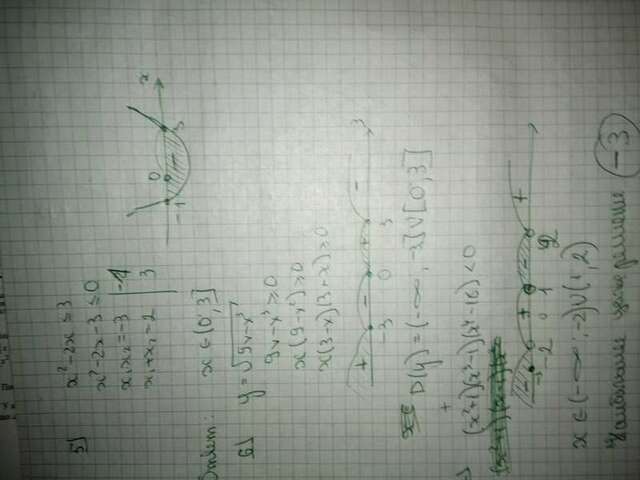 5)
x² - 2x ≤ 3
x² - 2x - 3 ≤ 0
x₁x₂ = -3 | -1
x₁ + x₂ = 2 | 3
-1 0 3 x
Ответ: x ∈ (0, 3]
6) y = √9x - x³
9x - x³ ≥ 0
x(9 - x²) ≥ 0
x(3 - x)(3 + x) ≥ 0
+ - + -
-3 0 3
D(y) = (-∞, -3] ∪ [0, 3]
(x²+1)(x³-1)(x⁴-16) < 0
- + - +
-3 -2 0 1 2
x ∈ (-∞; -2) ∪ (1, 2)
Наибольшее целое решение -3